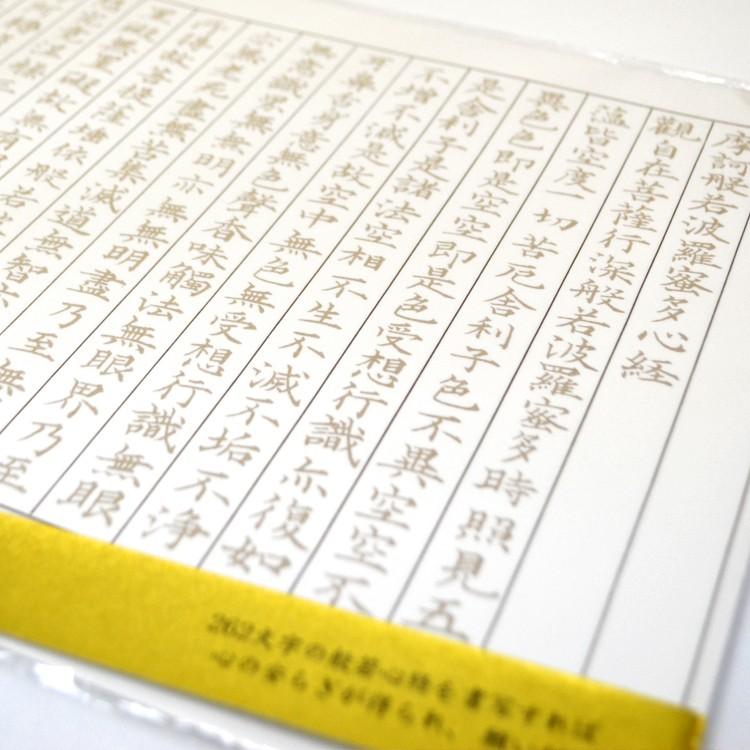 摩訶般若波羅蜜多心経
觀自在菩薩行深般若波羅蜜多時照見五
蘊皆空度一切苦厄舍利子色不異空空不
異色色即是空空即是色受想行識亦復如
是舍利子是諸法空相不生不滅不垢不淨
不增不減是故空中無色無受想行識無眼
耳鼻舌身意無色聲香味觸法無眼界乃至
無意識界無無明亦無無明盡乃至無
亦無老死盡無苦集滅道無智亦
所得故菩提薩埵依般若
無罣礙故無有
262文字の般若心経を書写すれば
心の安らぎが得られ、願い